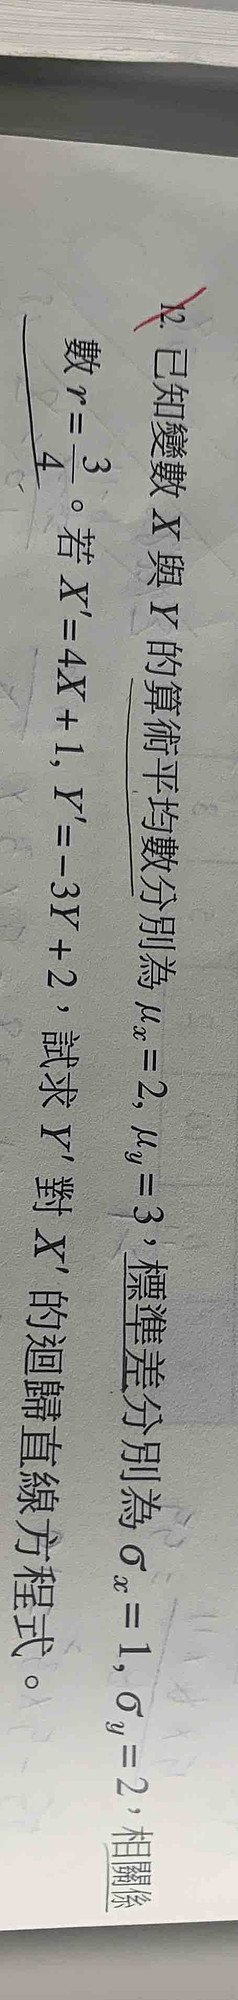 12. 已知變數 X 與 Y 的算術平均數分別為 μx=2, μy=3，標準差分別為 σx=1, σy=2，相關係
數 r=3/4。若 X′=4X+1, Y′=−3Y+2，試求 Y′ 對 X′ 的迴歸直線方程式。